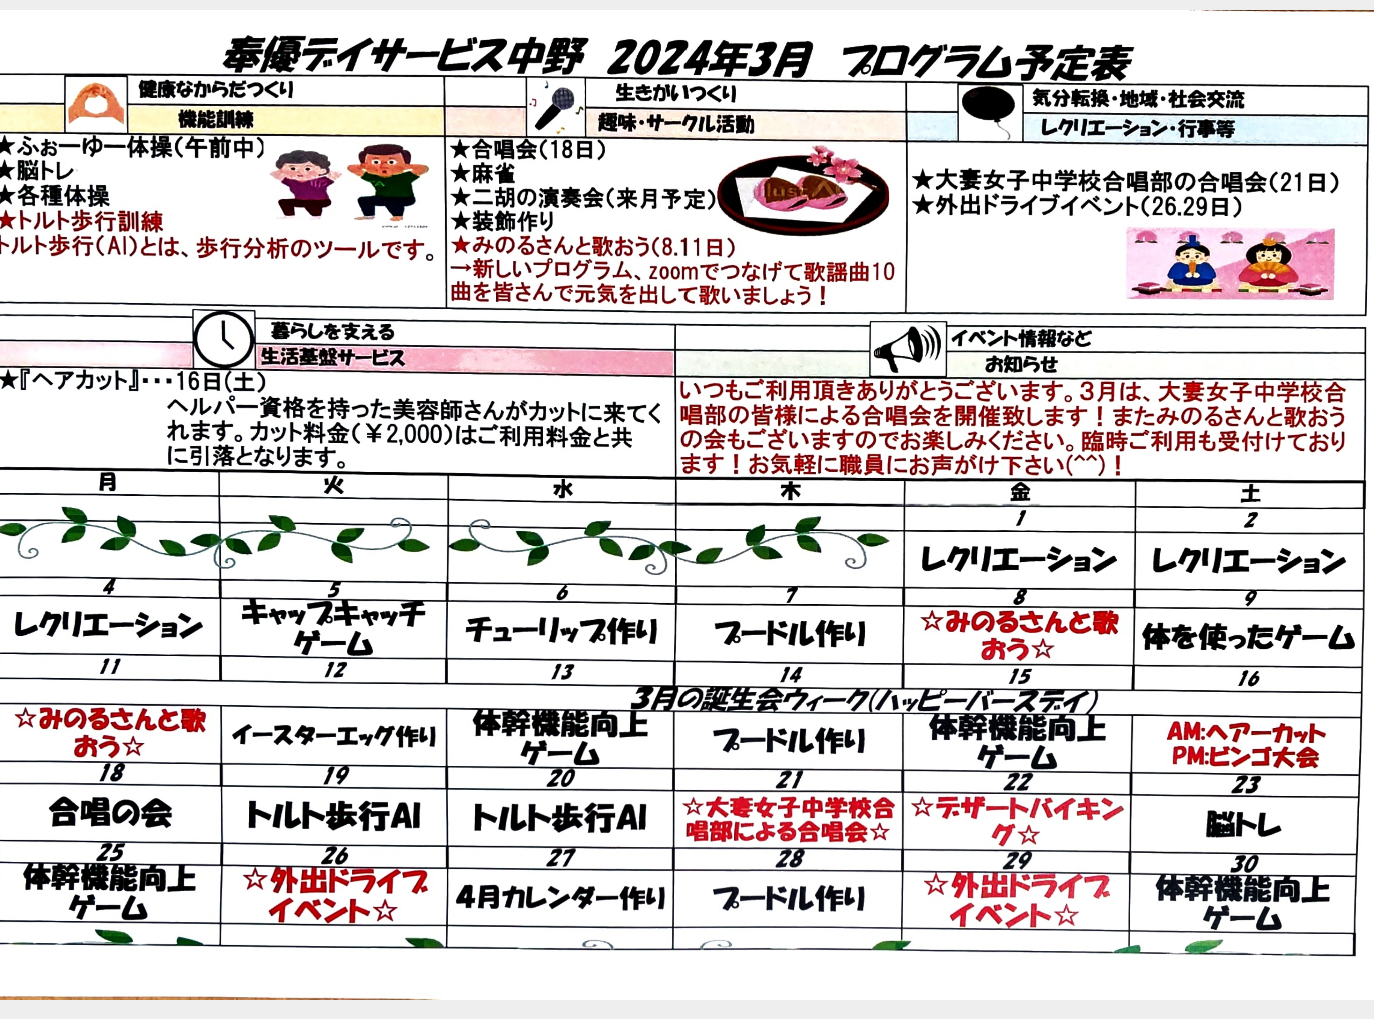 奉優デイサービス中野 2024年3月 プログラム予定表
健康なからだつくり
機能訓練
★ふぉーゆー体操(午前中)
★脳トレ
★各種体操
★トルト歩行訓練
トルト歩行(AI)とは、歩行分析のツールです。
生きがいつくり
趣味・サークル活動
★合唱会(18日)
★麻雀
★二胡の演奏会(来月予定)
★装飾作り
★みのるさんと歌おう(8.11日)
→新しいプログラム、zoomでつなげて歌謡曲10
曲を皆さんで元気を出して歌いましょう!
気分転換・地域・社会交流
レクリエーション・行事等
★大妻女子中学校合唱部の合唱会(21日)
★外出ドライブイベント(26.29日)
暮らしを支える
生活基盤サービス
★『ヘアカット』・・・16日(土)
ヘルパー資格を持った美容師さんがカットに来てく
れます。カット料金(￥2,000)はご利用料金と共
に引落となります。
イベント情報など
お知らせ
いつもご利用頂きありがとうございます。3月は、大妻女子中学校合
唱部の皆様による合唱会を開催致します!またみのるさんと歌おう
の会もございますのでお楽しみください。臨時ご利用も受付けており
ます!お気軽に職員にお声がけ下さい(^^)!
月 火 水 木 金 土
1 2
レクリエーション レクリエーション
4 5 6 7 8 9
レクリエーション キャップキャッチ
ゲーム チューリップ作り プードル作り ☆みのるさんと歌
おう☆ 体を使ったゲーム
11 12 13 14 15 16
3月の誕生会ウィーク(ハッピーバースデイ)
☆みのるさんと歌
おう☆ イースターエッグ作り 体幹機能向上
ゲーム プードル作り 体幹機能向上
ゲーム AM:ヘアーカット
PM:ビンゴ大会
18 19 20 21 22 23
合唱の会 トルト歩行AI トルト歩行AI ☆大妻女子中学校合
唱部による合唱会☆ ☆デザートバイキン
グ☆ 脳トレ
25 26 27 28 29 30
体幹機能向上
ゲーム ☆外出ドライブ
イベント☆ 4月カレンダー作り プードル作り ☆外出ドライブ
イベント☆ 体幹機能向上
ゲーム